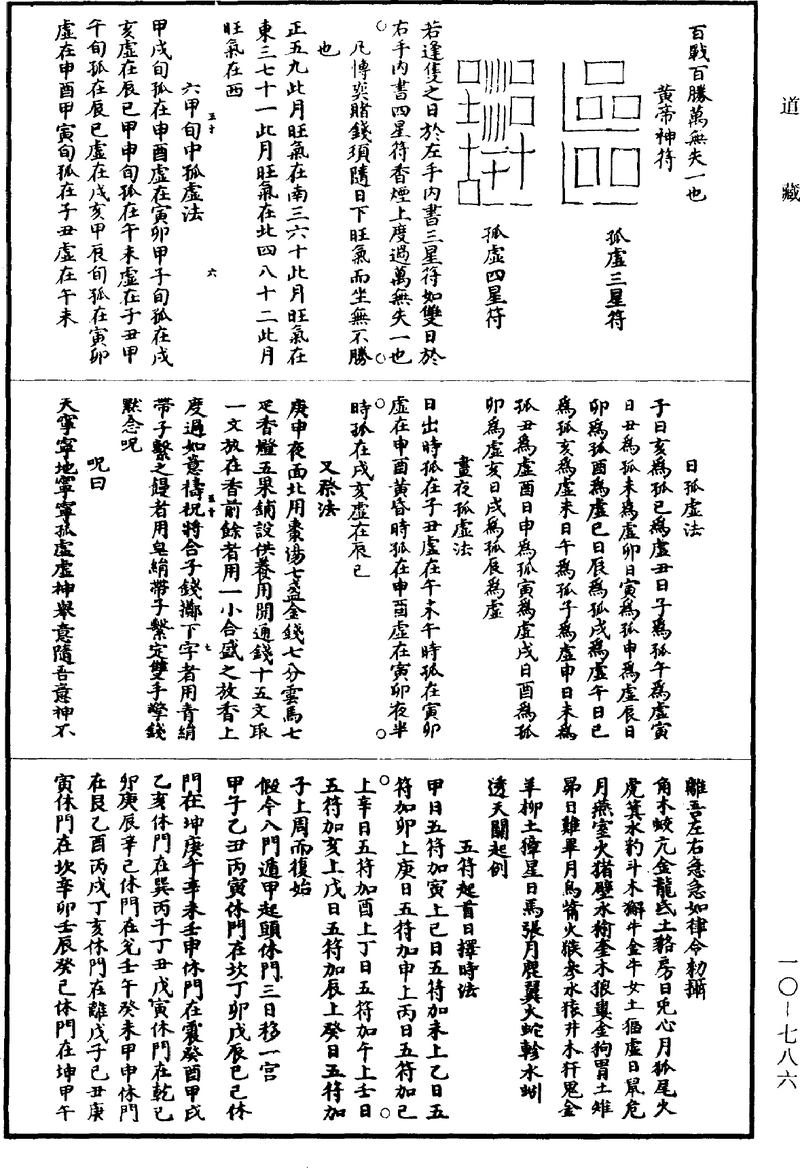 道藏
百戰百勝萬無失一也
黃帝神符
孤虛三星符
孤虛四星符
若逢隻之日於左手內書三星符如雙日於
右手內書四星符香煙上度過萬無失一也
凡博奕賭錢須隨日下旺氣而坐無不勝
也
正五九此月旺氣在南三六十此月旺氣在
東三七十一此月旺氣在北四八十二此月
旺氣在西
六甲旬中孤虛法
甲戌旬孤在申酉虛在寅卯甲子旬孤在戌
亥虛在辰巳甲申旬孤在午未虛在子丑甲
午旬孤在辰巳虛在戌亥甲辰旬孤在寅卯
虛在申酉甲寅旬孤在子丑虛在午未
日孤虛法
子日亥為孤巳為虛丑日子為孤午為虛寅
日丑為孤未為虛卯日寅為孤申為虛辰日
卯為孤酉為虛巳日辰為孤戌為虛午日巳
為孤亥為虛未日午為孤子為虛申日未為
孤丑為虛酉日申為孤寅為虛戌日酉為孤
卯為虛亥日戌為孤辰為虛
晝夜孤虛法
日出時孤在子丑虛在午未午時孤在寅卯
虛在申酉黃昏時孤在申酉虛在寅卯夜半
時孤在戌亥虛在辰巳
又祭法
庚申夜面北用棗湯七盞金錢七分雲馬七
疋香燈五果鋪設供養用開通錢十五文取
一文放在香前餘者用一小合盛之放香上
度過如意禱祝將合子錢擲下字者用青絹
帶子繫之鏝者用皂絹帶子繫定雙手擎錢
默念呪
呪曰
天寧寧地寧寧孤虛虛神舉意隨吾意神不
離吾左右急急如律令勑攝
角木蛟亢金龍氐土貉房日兔心月狐尾火
虎箕水豹斗木獬牛金牛女土蝠虛日鼠危
月燕室火猪壁水㺄奎木狼婁金狗胃土雉
昴日雞畢月烏觜火猴參水猿井木犴鬼金
羊柳土獐星日馬張月鹿翼火蛇軫水蚓
透天關起例
五符起首日擇時法
甲日五符加寅上己日五符加未上乙日五
符加卯上庚日五符加申上丙日五符加巳
上辛日五符加酉上丁日五符加午上壬日
五符加亥上戊日五符加辰上癸日五符加
子上周而復始
假令八門遁甲起頭休門三日移一宮
甲子乙丑丙寅休門在坎丁卯戊辰己巳休
門在坤庚午辛未壬申休門在震癸酉甲戌
乙亥休門在巽丙子丁丑戊寅休門在乾己
卯庚辰辛巳休門在兌壬午癸未甲申休門
在艮乙酉丙戌丁亥休門在離戊子己丑庚
寅休門在坎辛卯壬辰癸巳休門在坤甲午
一〇－七八六